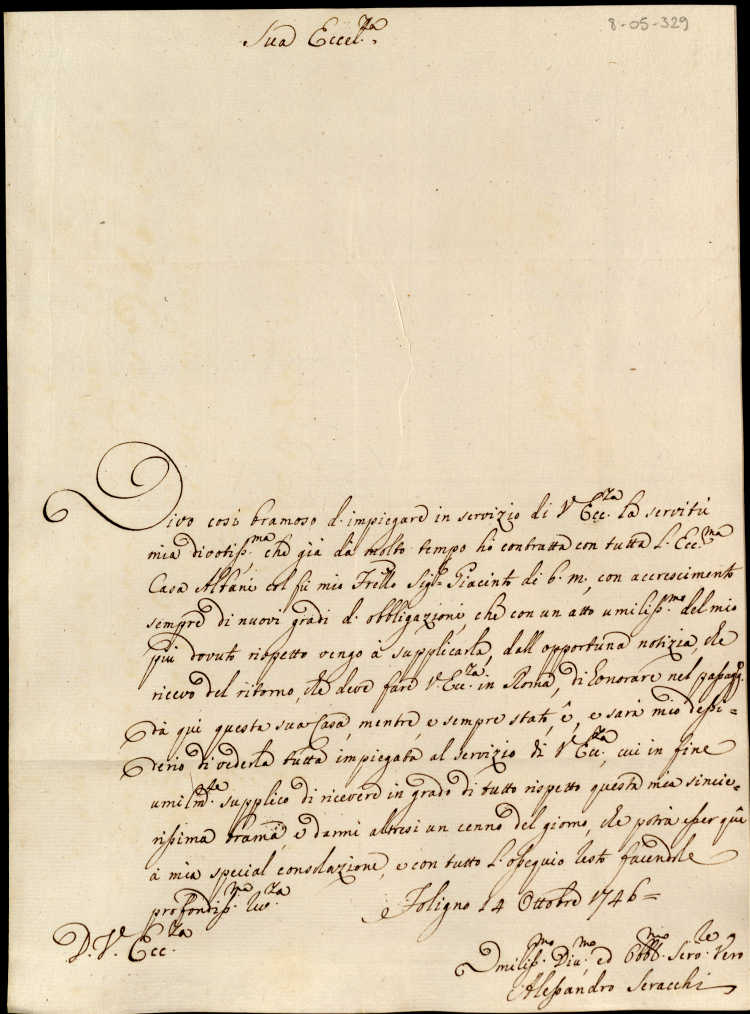 8-05-329
Sua Eccel.za
Vivo così bramoso d'impiegare in servizio di V. Ecc.za la servitù
mia divotiss.ma che già da molto tempo ho contratta con tutta l'Ecc.ma
Casa Albani col fù mio Frello Sig.r Giacinto di b. m., con accrescimento
sempre di nuovi gradi d'obbligazioni, che con un atto umiliss.mo del mio
più dovuto rispetto vengo à supplicarla, dall'opportuna notizia, che
ricevo del ritorno, che deve fare V. Ecc.za in Roma, di honorare nel passagg.
dà qui questa sua Casa, mentre, e sempre stato, è, e sarà mio dessi=
derio di vederla tutta impiegata al servizio di V. Ecc.za, cui in fine
umilm.te supplico di ricevere in grado di tutto rispetto questa mia sincie=
rissima brama, e darmi altresì un cenno del giorno, che potrà esser quì
à mia special consolazione, e con tutto l'ossequio resto facendole
profondiss.ma riv.za
Foligno 14 Ottobre 1746=
D. V. Ecc.za
Umiliss.mo Div.mo ed Obbl.mo Serv.re Vero
Alessandro Seracchi